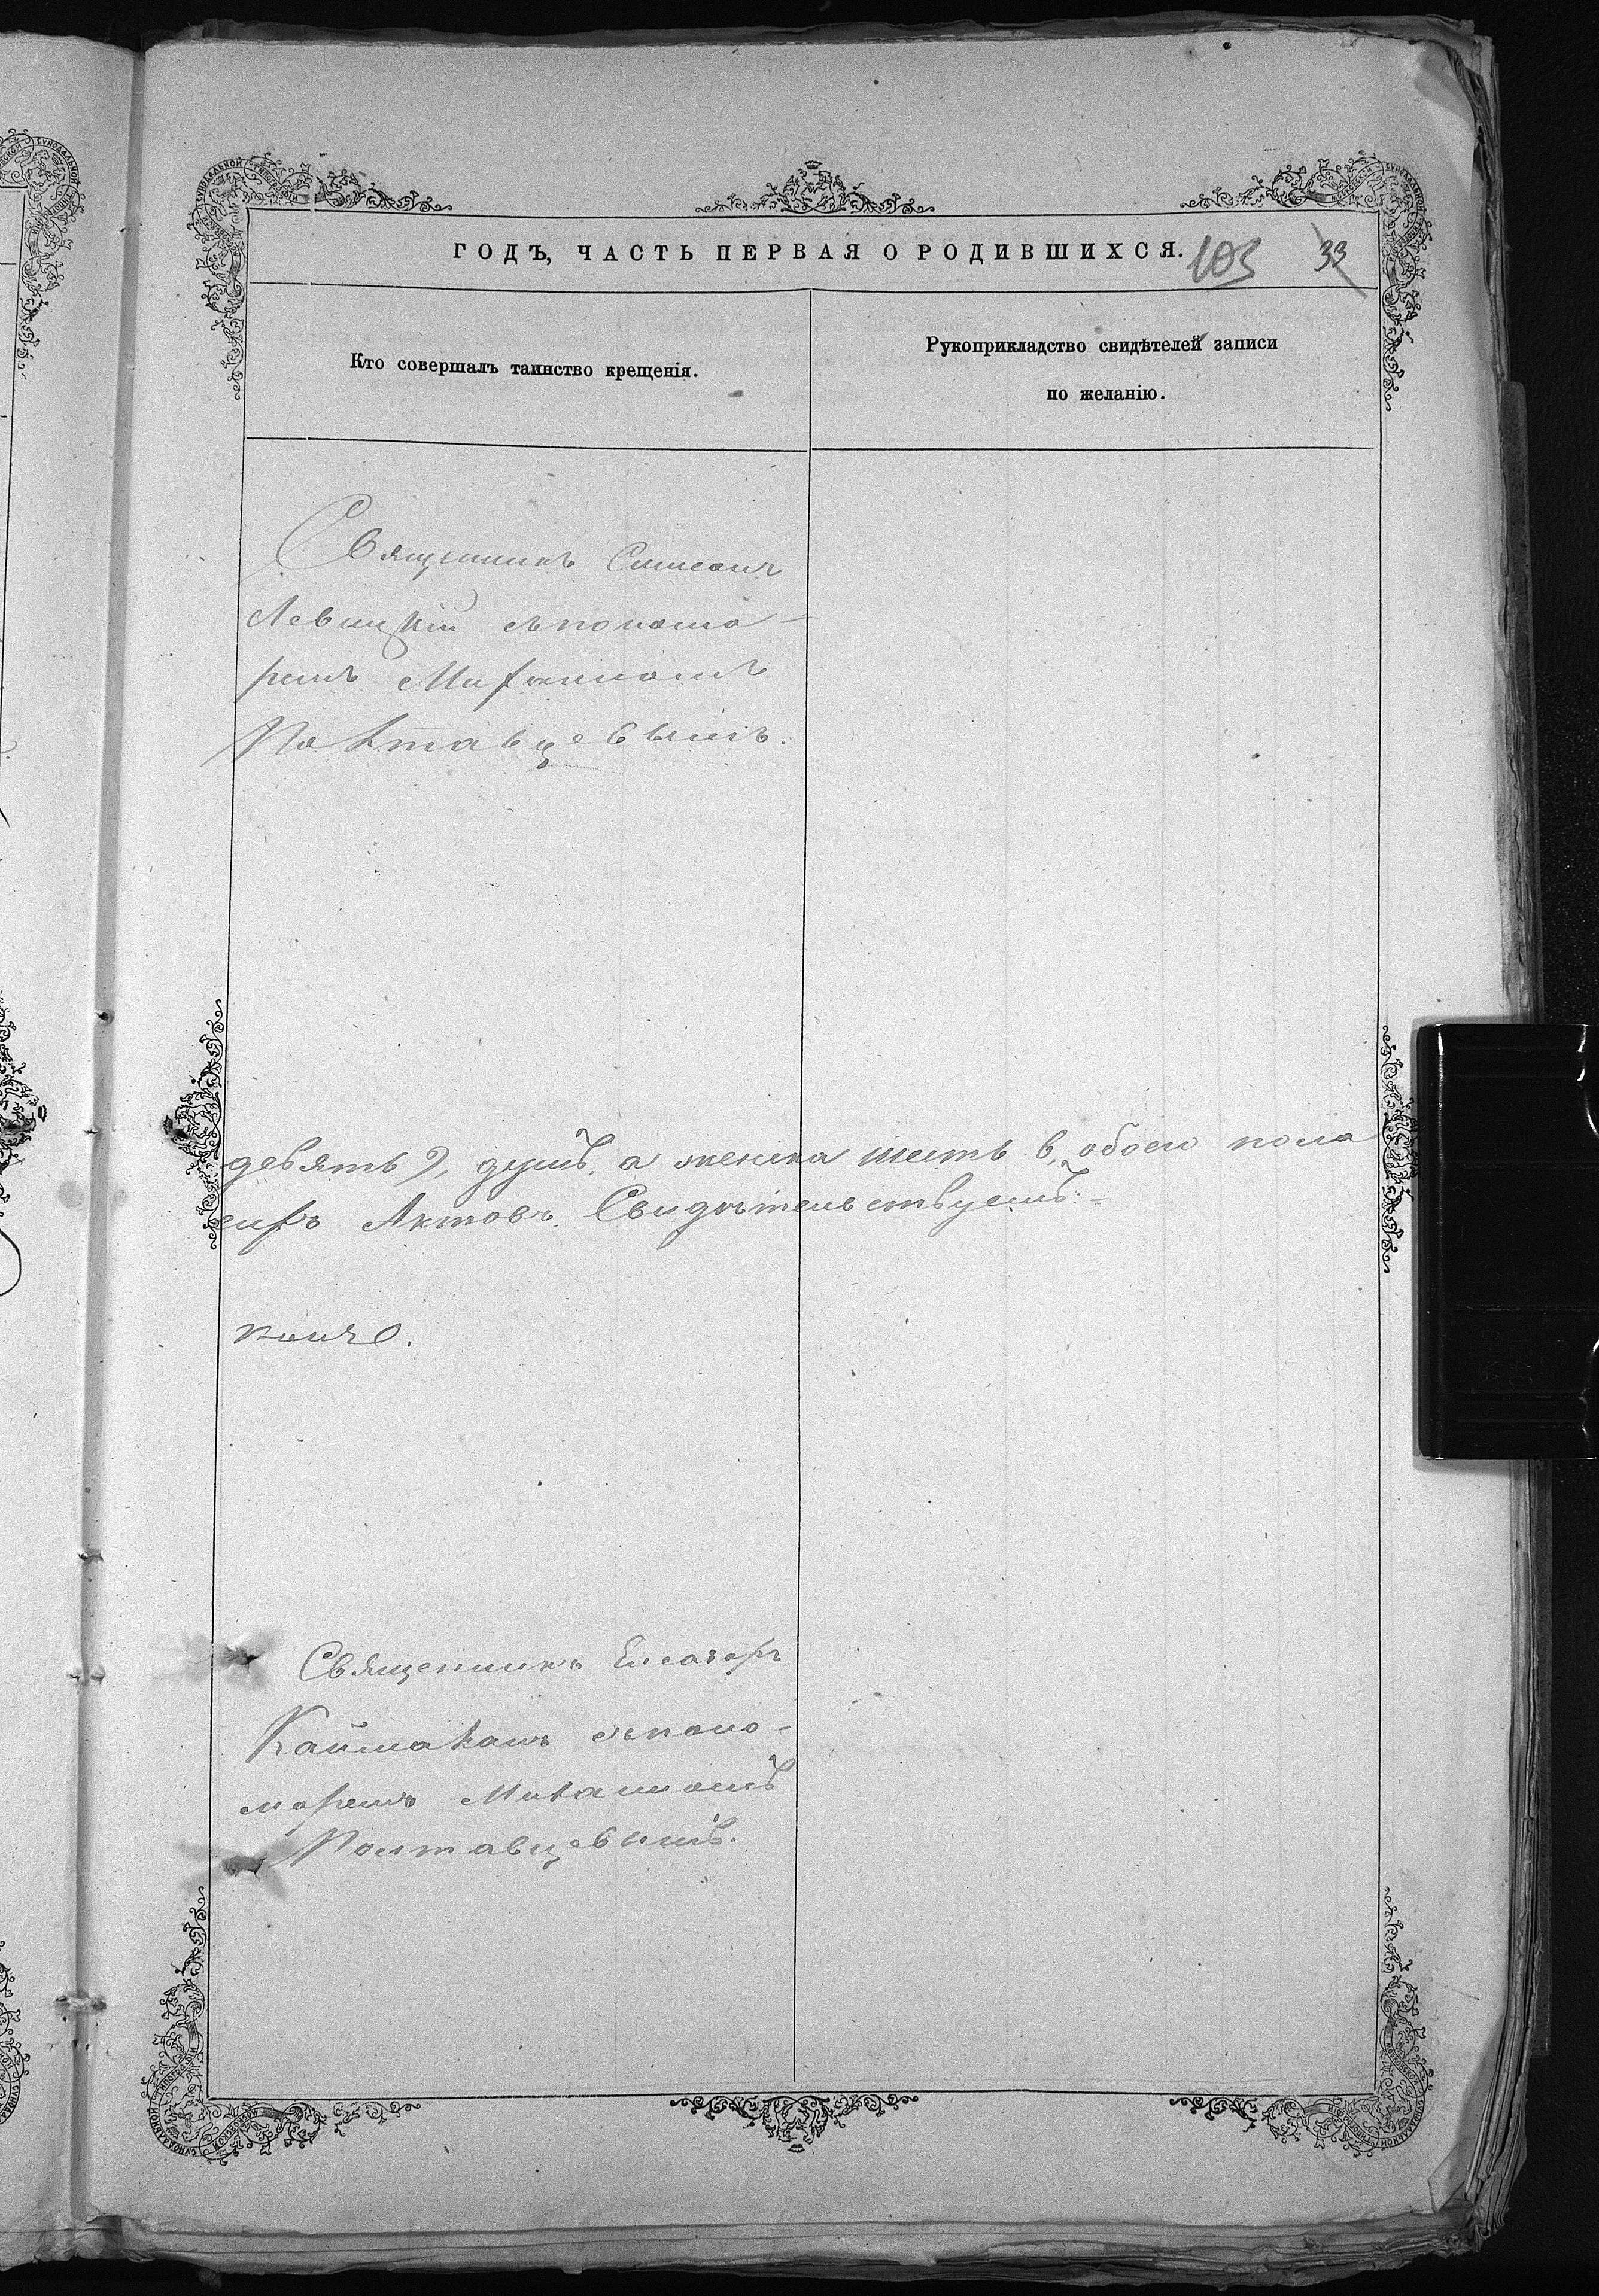 ГОДЪ, ЧАСТЬ ПЕРВАЯ О РОДИВШИХСЯ. 103 33
Кто совершалъ таинство крещенія.
Рукоприкладство свидѣтелей записи
по желанію.
Священникъ Симеонъ
Левицкій съ понома-
ремъ
Полтавцевымъ.
девять 9, душъ, а женска шесть 6, обоего пола
Актовъ. Свидѣтельствуемъ:-
Священникъ Елеазаръ
Каймаканъ съ поно-
маремъ
Полтавцевымъ.